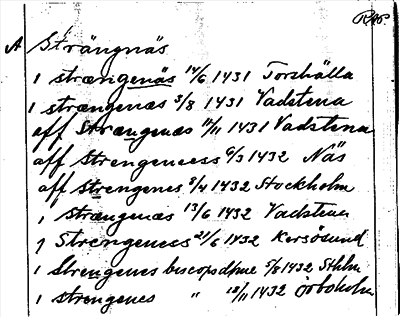 RAP.
A Strängnäs
i strængenäs 14/6 1431 Torshälla
i strængenæs 3/8 1431 Vadstena
aff Strængenæs 11/11 1431 Vadstena
aff Strengeness 6/3 1432 Näs
aff strengenes 8/4 1432 Stockholm
i strængenæs 13/6 1432 Vadstena
i Strengeness 21/6 1432 Kersösund
i Strengenes biscopsdøme 5/8 1432 Sthlm
i strengenes " 18/11 1432